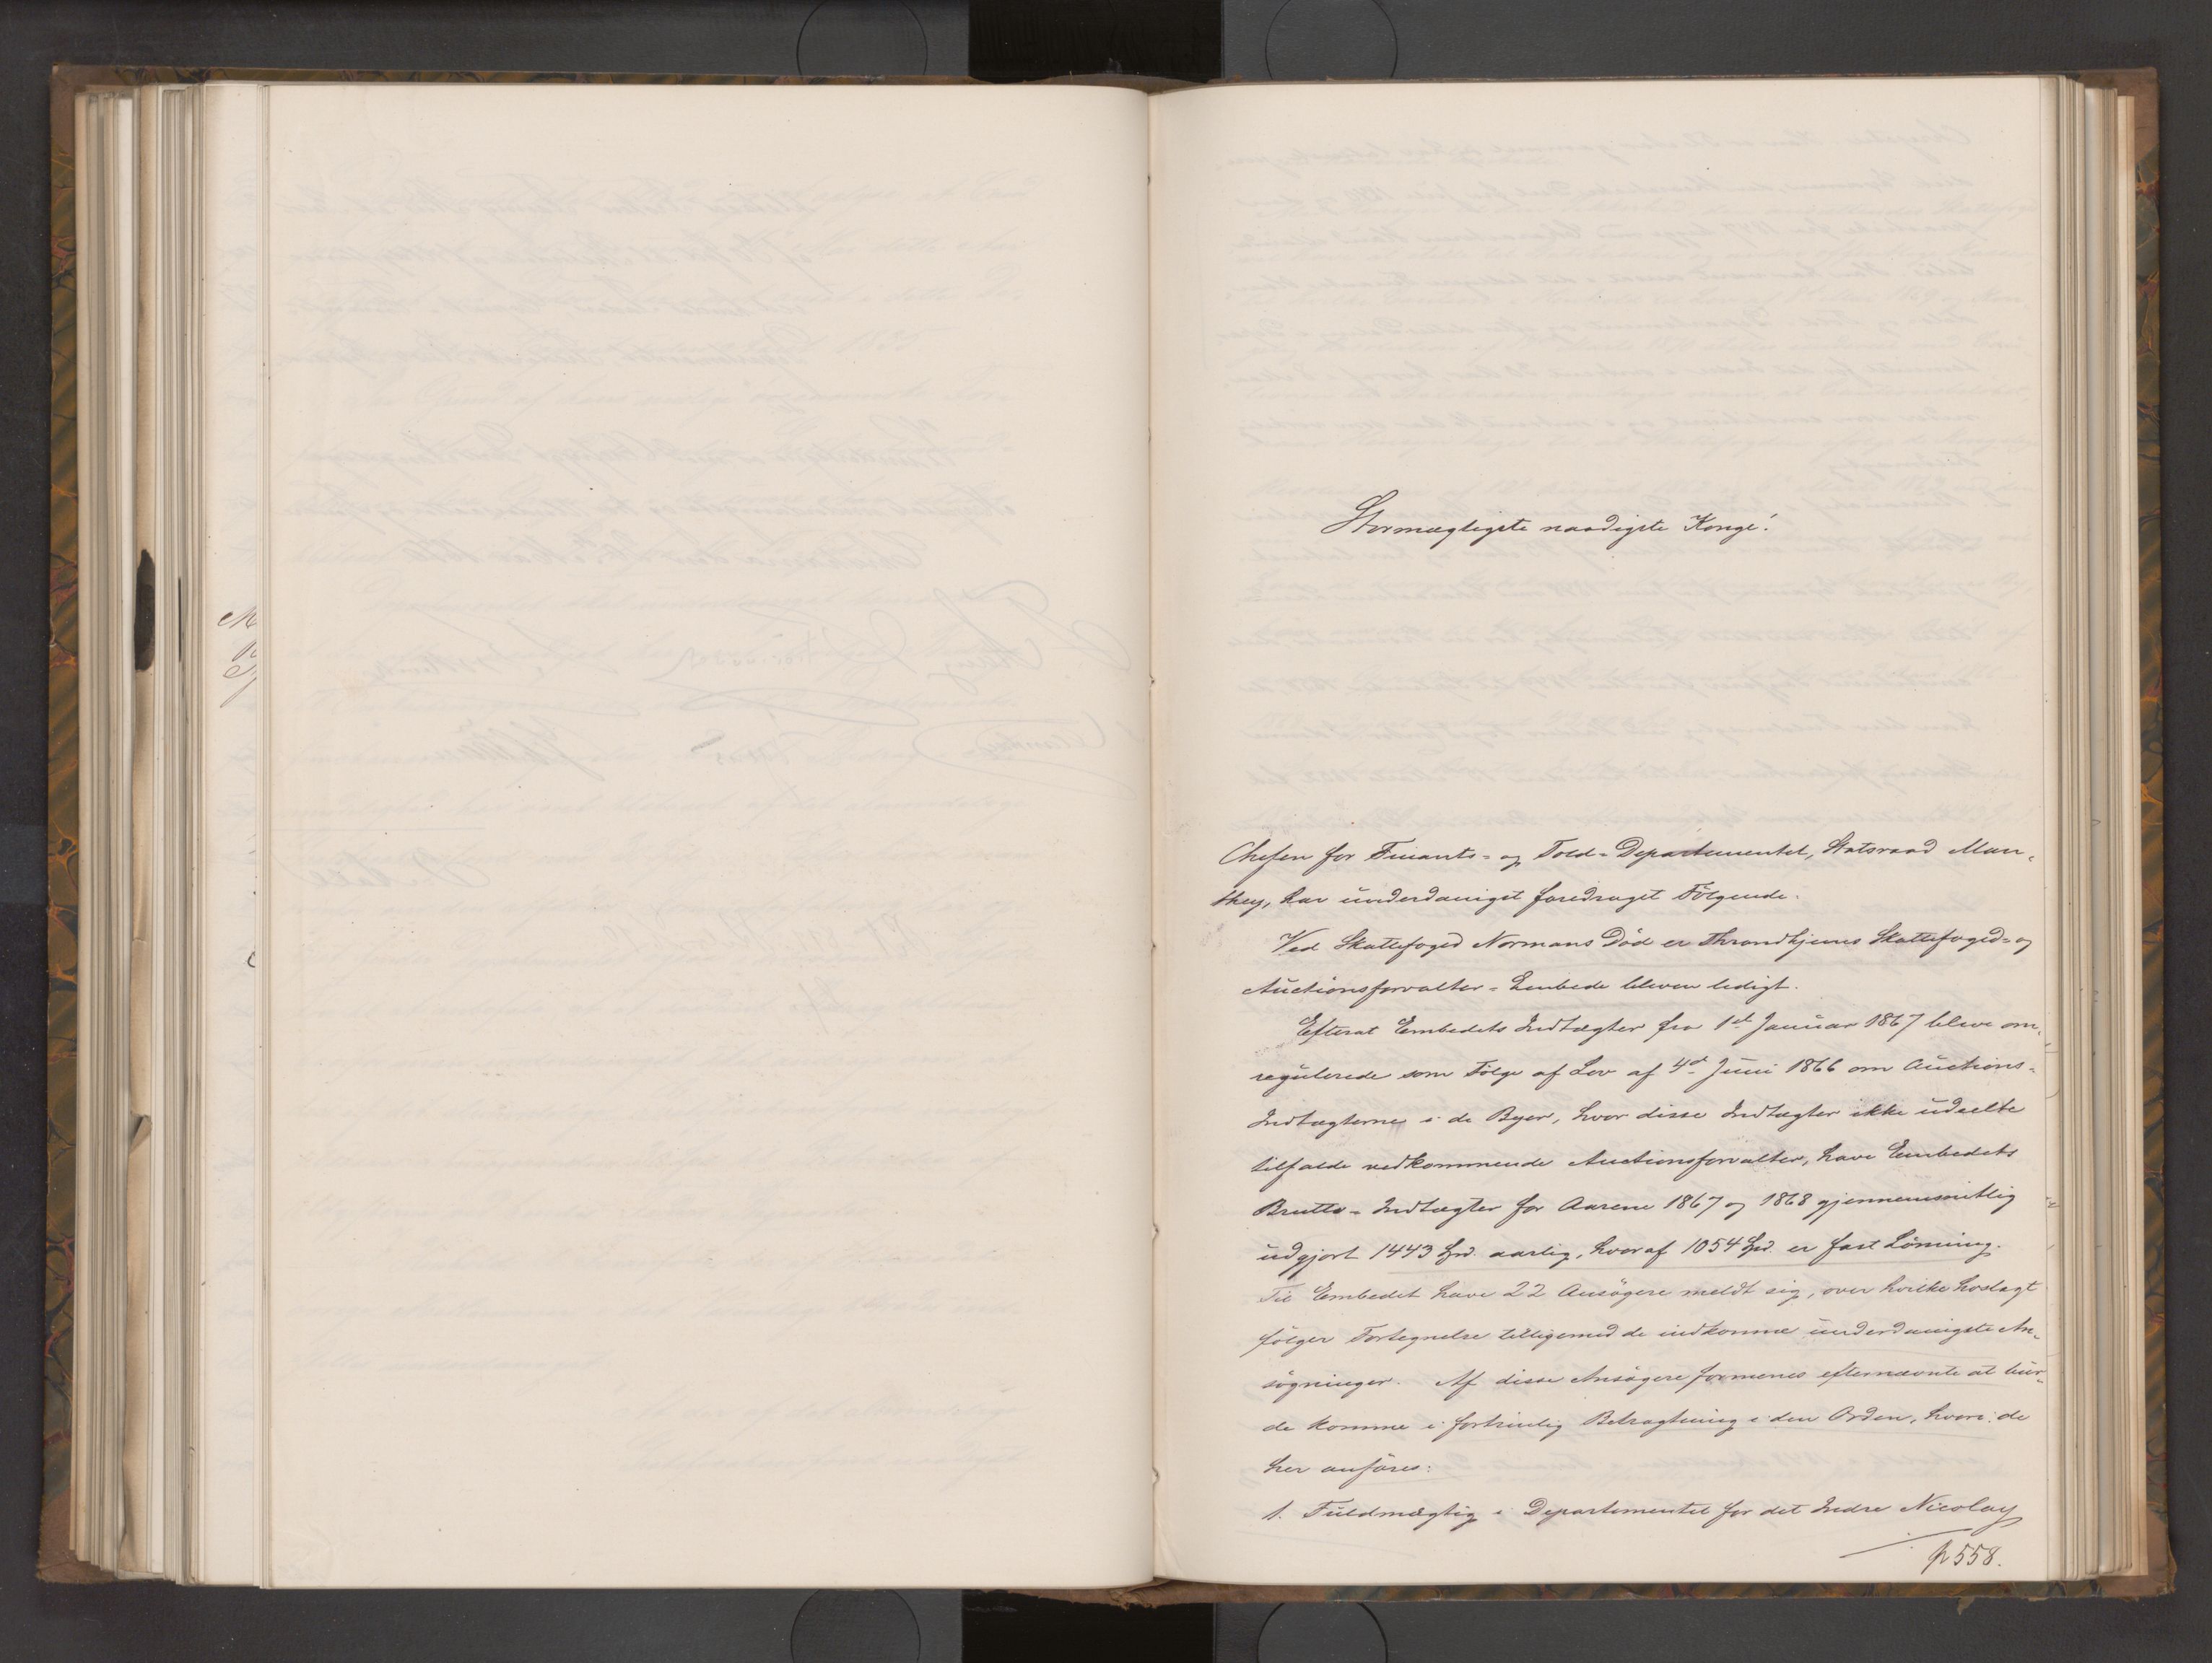 Stormægtigste naadigste Konge!
Chefen for Finants- og Told-Departementet, Statsraad Man-
they, har underdanigst foredraget Følgende.
Ved Skattefoged Normans Död er Throndhjems Skattefoged- og
Auctionsforvalter-Embede bleven ledigt.
Efterat Embedets Indtægter fra 1st Januar 1867 bleve om-
regulerede som Følge af Lov af 4d Juni 1866 om Auctions-
Indtægterne i de Byer, hvor disse Indtægter ikke udeelte
tilfalde vedkommende Auctionsforvalter, have Embedets
Brutto-Indtægter for Aarene 1867 og 1868 gjennemsnitlig
udgjort 1443 Spd. aarlig, hvoraf 1054 Spd. er fast Lönning.
Til Embedet have 22 Ansögere meldt sig, over hvilke hoslagt
fölger Fortegnelse tilligemed de indkomne underdanigste An-
sögninger. Af disse Ansögere formenes efternævnte at bur-
de komme i fortrinlig Betragtning i den Orden, hvori de
her anföres:
1. Fuldmægtig i Departementet for det Indre Nicolay
p 558.